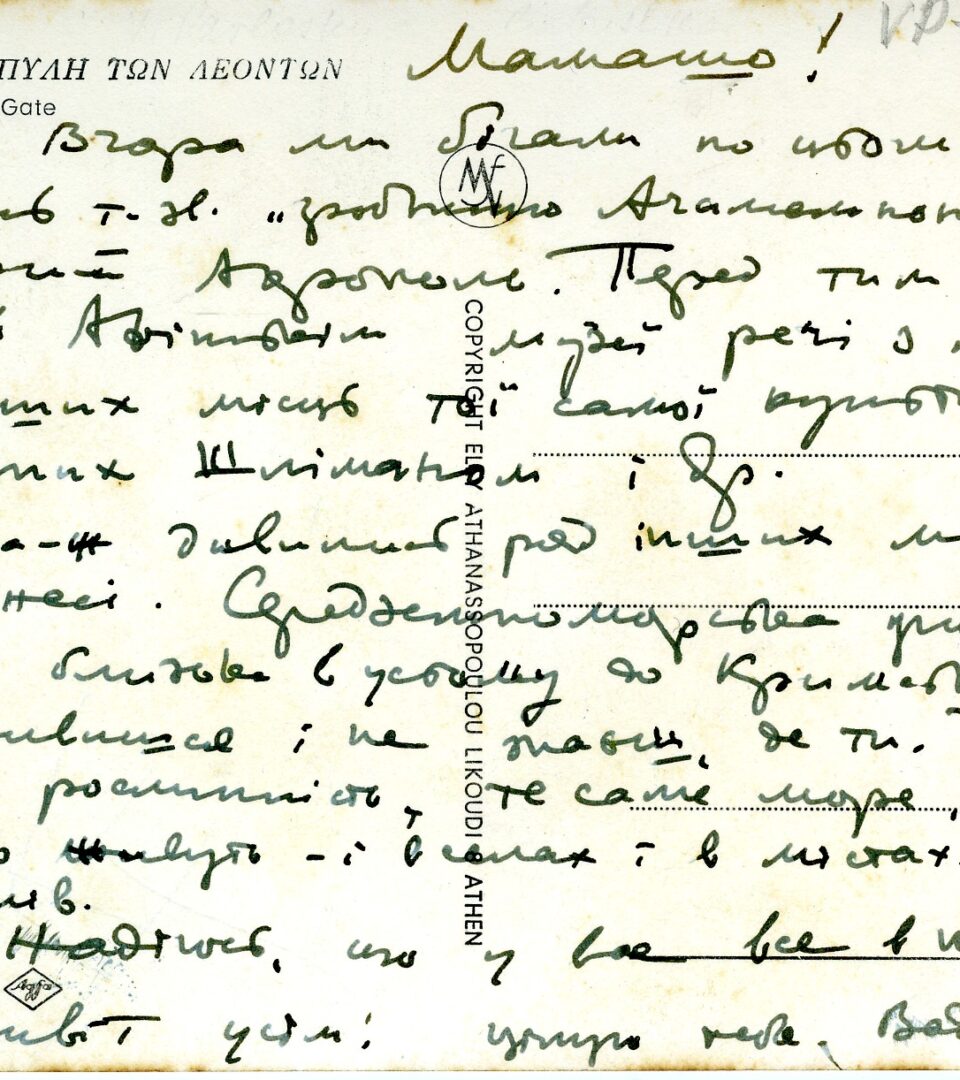 ΠΥΛΗ ΤΩΝ ΛΕΟΝΤΩΝ
Gate
Мамашо!
Вчора ми бігали по цьому
т. зв. „гробницю Агамемнон
Акрополь. Перед тим
Афінськім музеї речі з
ших місць тої самої культ
них Шліманом і др.
а-ж дивились ряд інших м
несі. Середземноморська
близька в усьому до Кримсь
дивишся і не знаєш, де ти.
рослинність, те саме море,
живуть - і в селах і в містах.
ків.
Надіюсь, що у вас все в
привіт усім! цілую тебе. Ва
COPYRIGHT ELLY ATHANASSOPOULOU LIKOUDI 8 ATHEN
Agfa